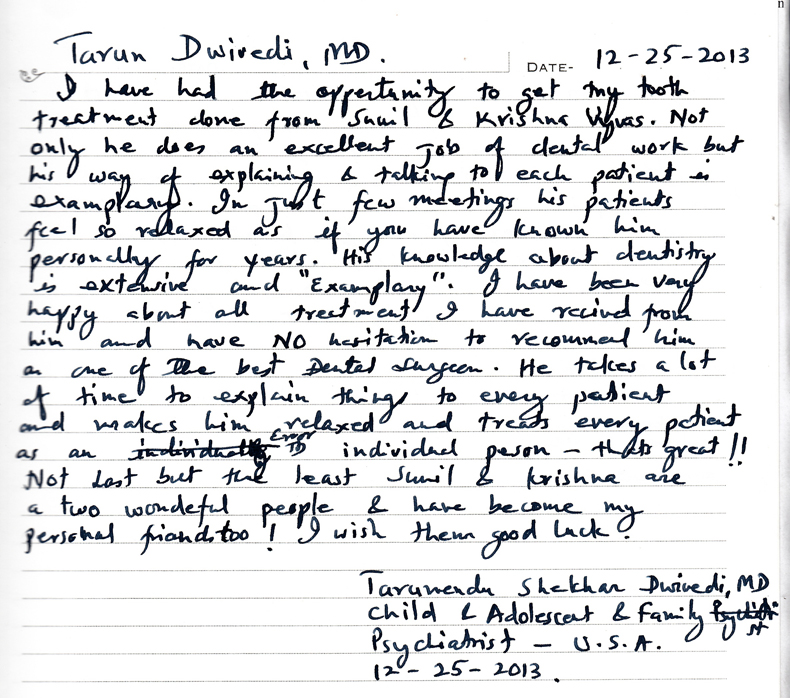 Tarun Dwivedi, MD.
DATE- 12-25-2013
I have had the oppertunity to get my tooth
treatment done from Sunil & Krishna Vyas. Not
only he does an excellent job of dental work but
his way of explaining & talking to each patient is
examplary. In just few meetings his patients
feel so relaxed as if you have known him
personally for years. His knowledge about dentistry
is extensive and "Examplary". I have been very
happy about all treatment I have recived from
him and have NO hesitation to recommend him
as one of The best Dental Surgeon. He takes a lot
of time to explain things to every patient
and makes him relaxed and treats every patient
as an individually Error TD individual person – thats great!!
Not Last but the least Sunil & Krishna are
a two wondeful people & have become my
personal friends too! I wish them good luck!
Tarunendu Shekhar Dwivedi, MD
Child & Adolescent & Family
Psychiatrist – U.S.A.
12-25-2013.